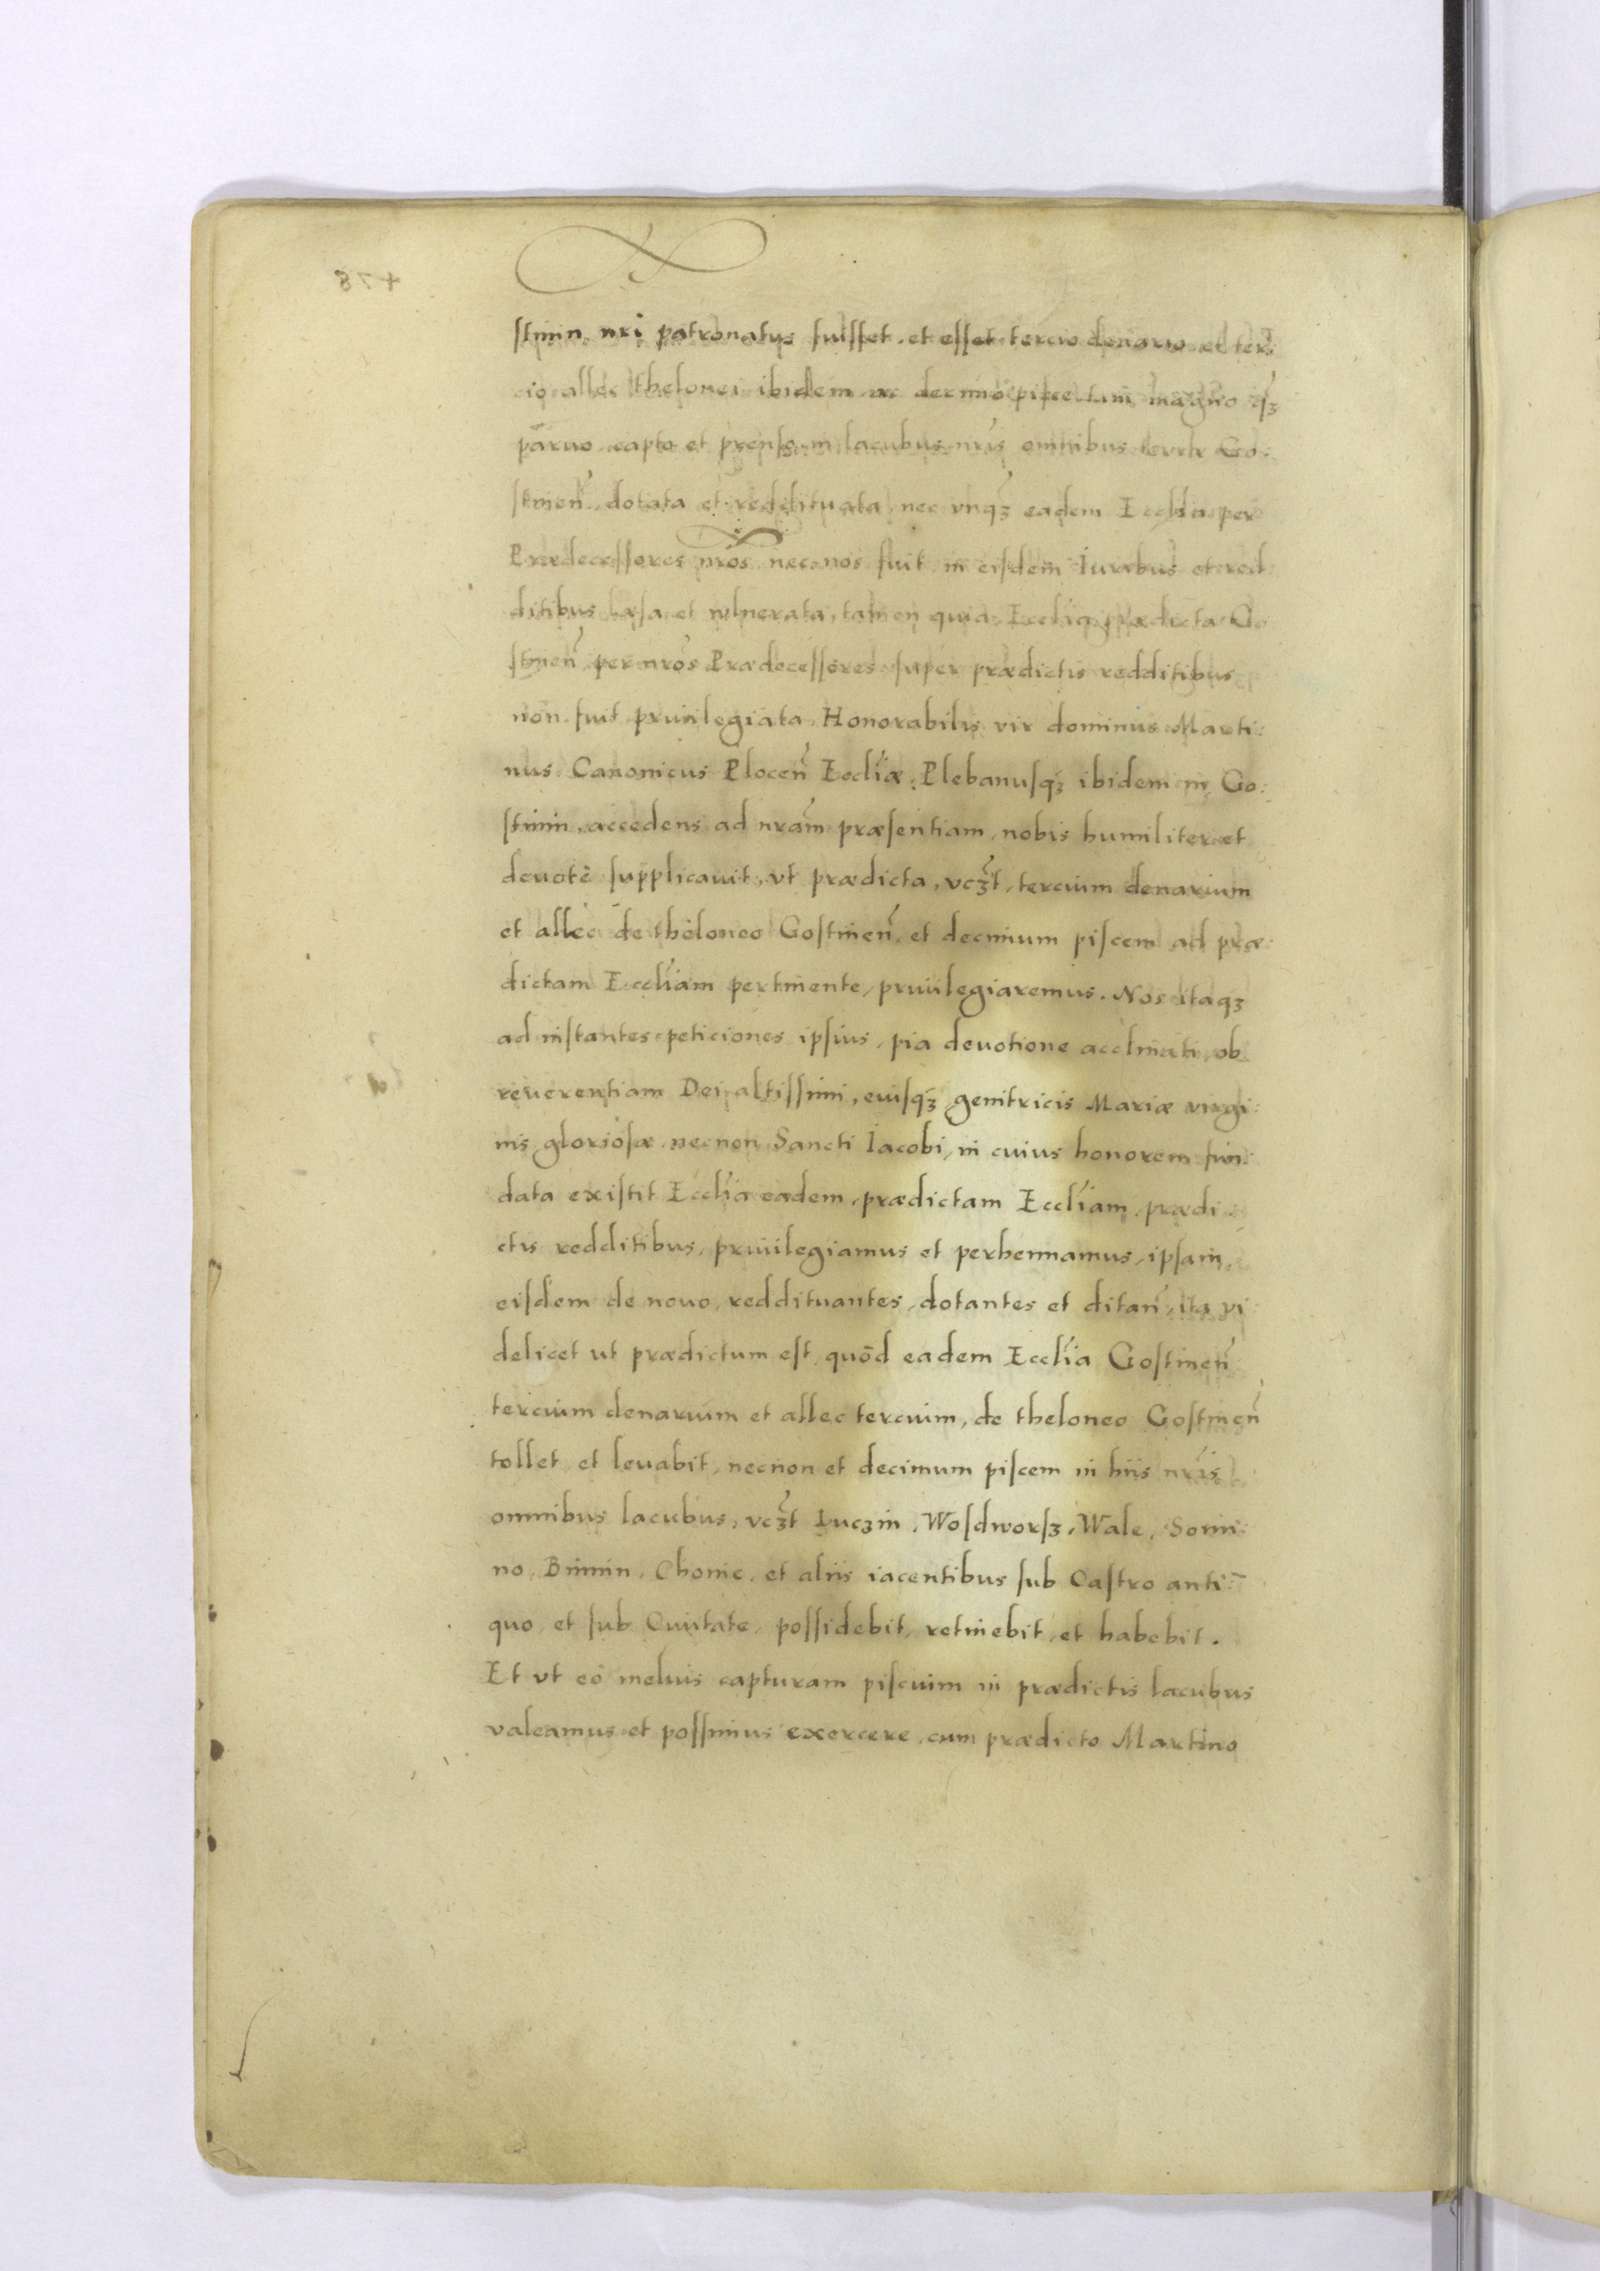 stinin nri patronatus fuisset et esset tercio denario et ter:
cio allec thelonei ibidem ac decimo pisce tam magno qȝ
paruo capto et prenso in lacubus nris omnibus terræ Go:
stinen̄ dotata et reddituata, nec vnqȝ eadem Ecclīa per
Prædecessores nros nec nos fuit in eisdem Iuribus et red
ditibus læsa et vulnerata, tamen quia Ecclīa prædicta Go
stinen̄ per nros Prædecessores super prædictis redditibus
non fuit priuilegiata, Honorabilis vir dominus Marti:
nus Canonicus Plocen̄ Ecclīæ, Plebanusqȝ ibidem in Go:
stinin, accedens ad nram præsentiam, nobis humiliter et
deuotè supplicauit, vt prædicta, vcȝt, tercium denarium
et allec de theloneo Gostinen̄, et decimum piscem ad præ:
dictam Ecclīam pertinente, priuilegiaremus. Nos itaqȝ
ad instantes peticiones ipsius, pia deuotione acclinati, ob
reuerentiam Dei altissimi, eiusqȝ genitricis Mariæ virgi:
nis gloriosæ necnon Sancti Iacobi, in cuius honorem fun:
data existit Ecclīa eadem, prædictam Ecclīam, prædi
ctis redditibus, priuilegiamus et perhennamus, ipsam,
eisdem de nouo, reddituantes, dotantes et ditan̄, ita vi
delicet ut prædictum est, quòd eadem Ecclīa Gostinen̄
tercium denarium et allec tercium, de theloneo Gostinen̄
tollet et leuabit, necnon et decimum piscem in hiis nris
omnibus lacubus, vcȝt Luczin, Wosdworsȝ, Wale, Sonni:
no, Bimin, Chonie, et aliis iacentibus sub Castro anti:
quo, et sub Ciuitate, possidebit, retinebit, et habebit.
Et vt eò melius capturam piscium in prædictis lacubus
valeamus et possimus exercere, cum prædicto Martino